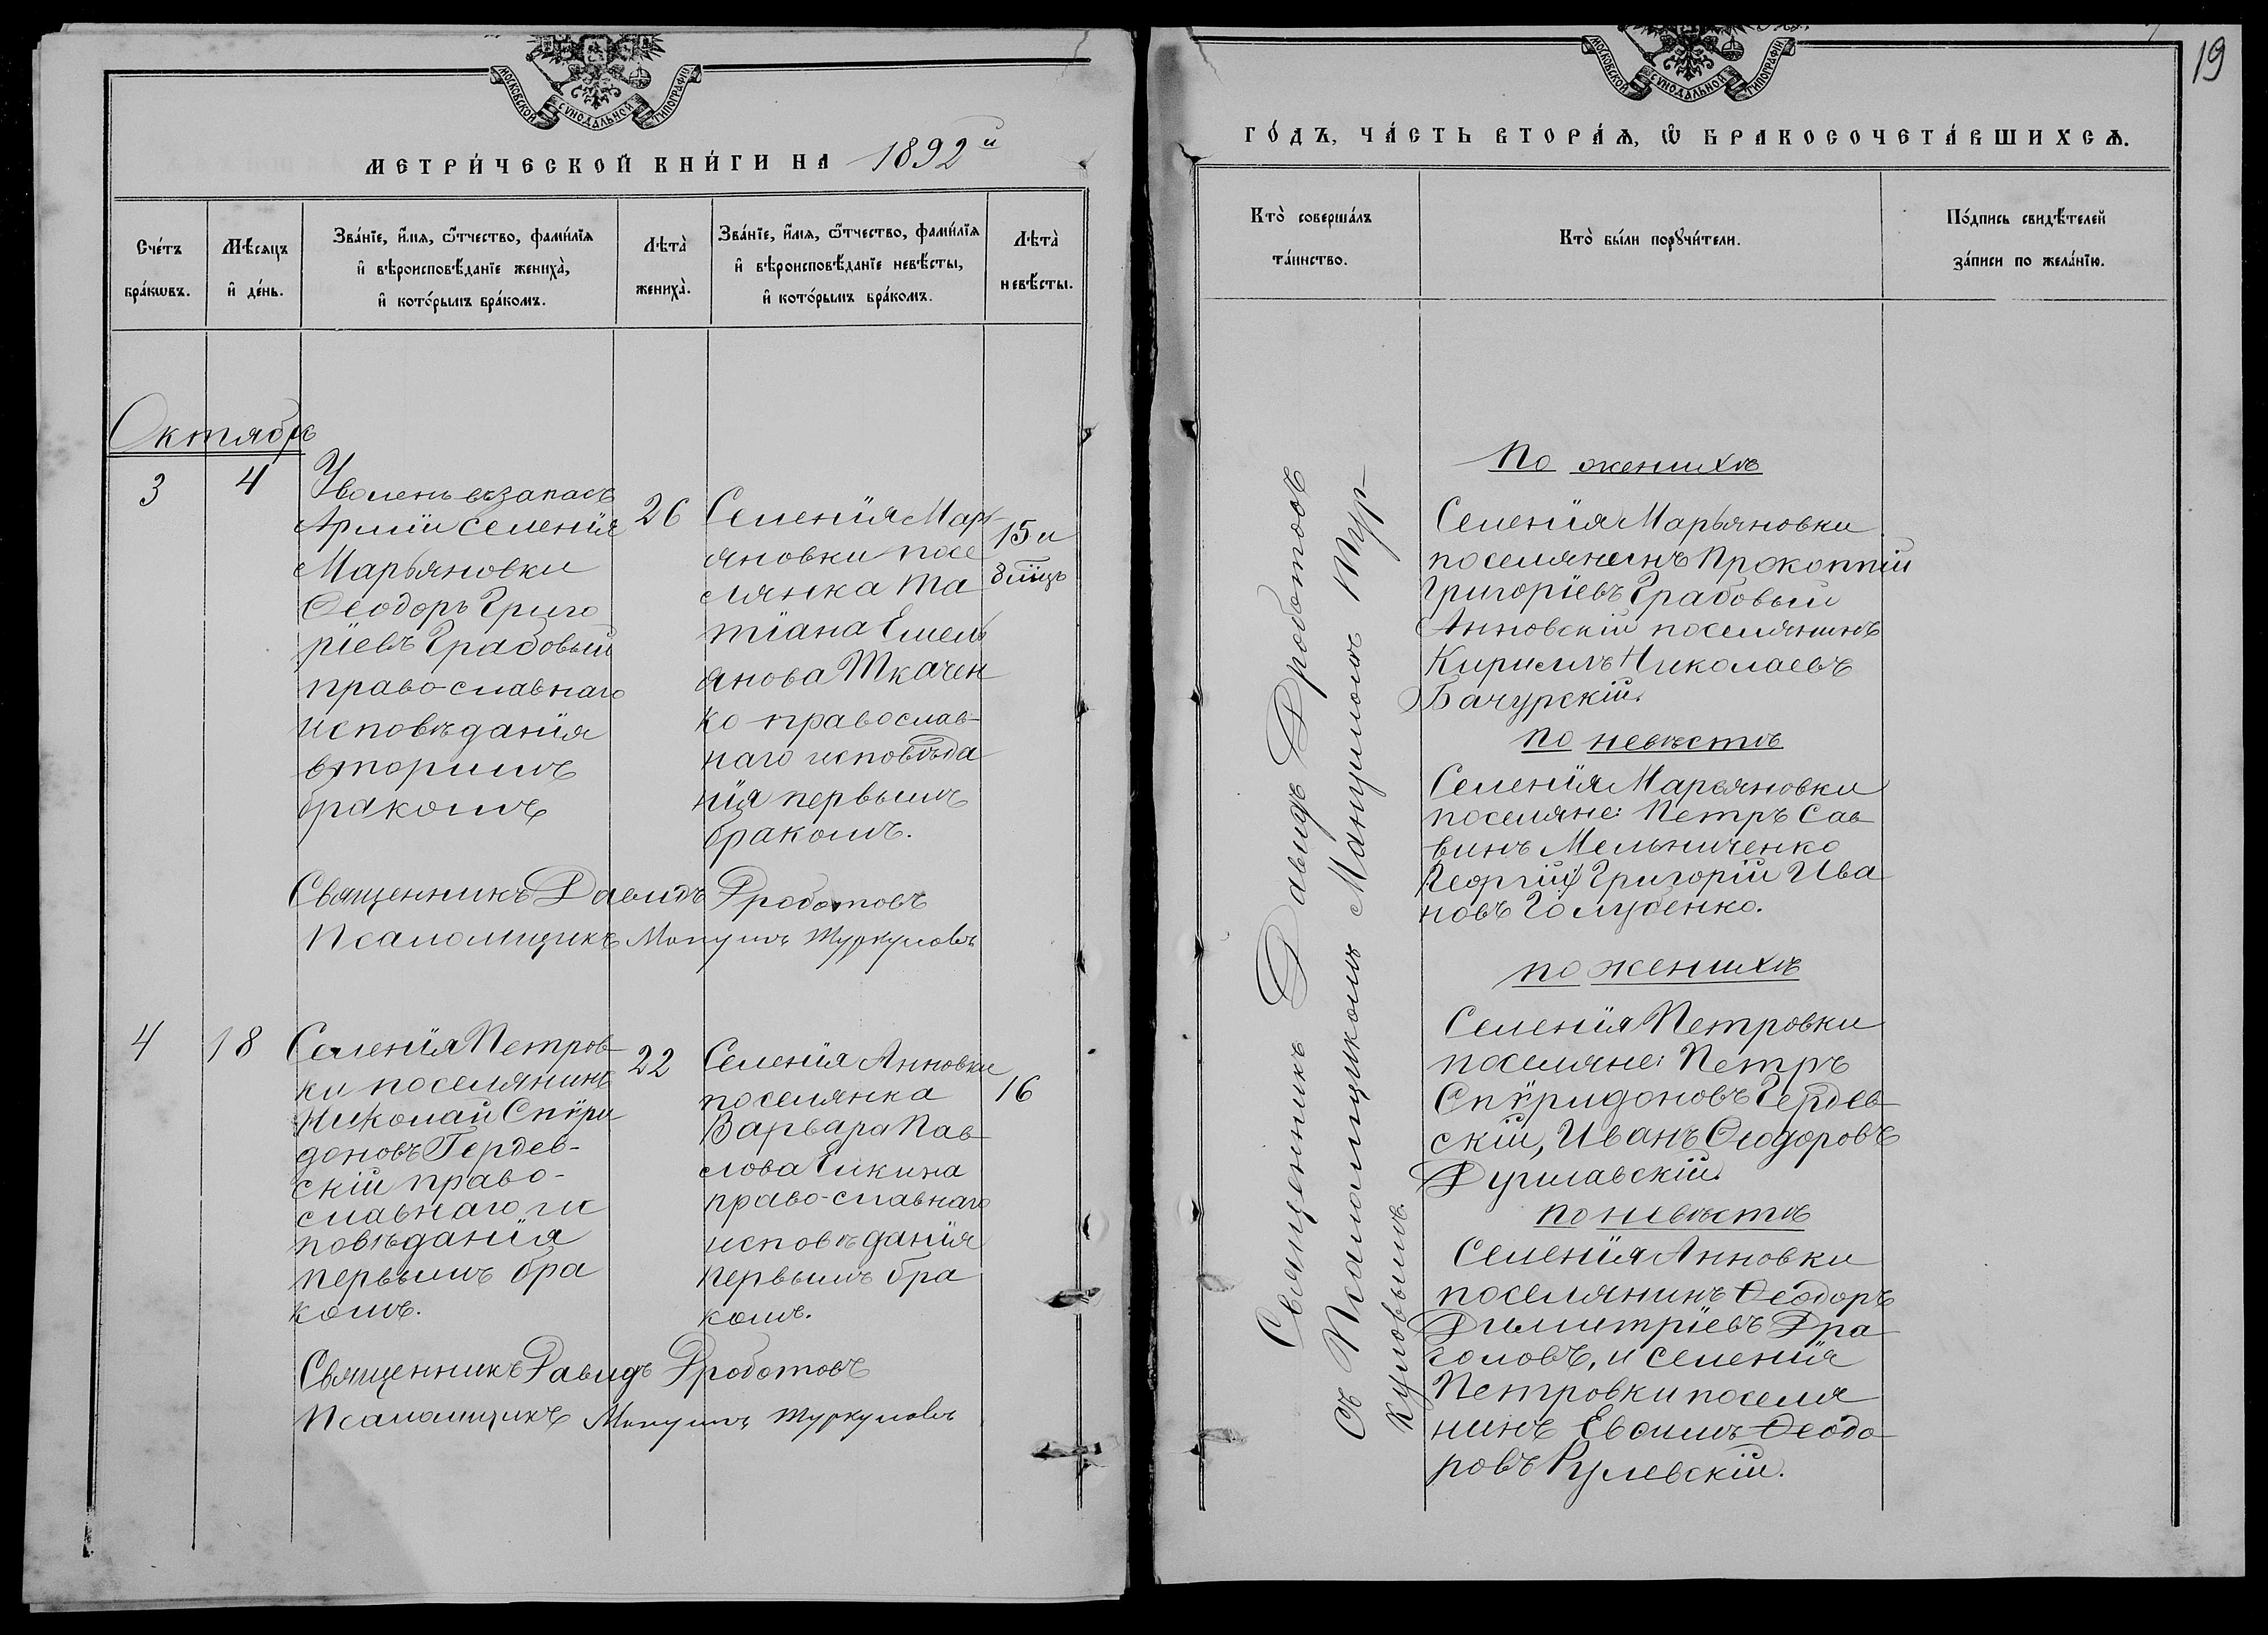 МОСКОВСКОЙ СУНОДАЛЬНОЙ ТИПОГРАФІИ
МЕТРИ́ЧЕСКОЙ КНИ́ГИ НА 1892 й
Сче́тъ бра́кѡвъ.
Мѣ́сяцъ и҆ де́нь.
Зва́нїе, и҆́мя, ѻ҆́тчество, фами́лїя
и҆ вѣроисповѣ́данїе жениха̀,
и҆ кото́рымъ бра́комъ.
Лѣта̀ жениха̀.
Зва́нїе, и҆́мя, ѻ҆́тчество, фами́лїя
и҆ вѣроисповѣ́данїе невѣ́сты,
и҆ кото́рымъ бра́комъ.
Лѣта̀ невѣ́сты.
Октябрь
3
4
Уволен въ запасъ
Арміи селенія
Марьяновки
Ѳеодоръ Григо
ріевъ Грабовый
право-славнаго
исповѣданія
вторимъ
бракомъ
26
Селенія Марь
яновки посе
лянка Та
тіана Емель
янова Ткачен
ко православ-
наго исповѣда
нія первымъ
бракомъ.
15 и
8 мѣц
Священникъ Давидъ Дроботовъ
Псаломщикъ Мануилъ Туркуловъ
4
18
Селенія Петров-
ки поселянинъ
Николай Спѵри
доновъ Гердев-
скій право-
славнаго ис
повѣданія
первымъ бра
комъ.
22
Селенія Анновки
поселянка
Варвара Пав-
лова Енкина
право-славнаго
исповѣданія
первымъ бра
комъ.
16
Священникъ Давидъ Дроботовъ
Псаломщикъ Мануилъ Туркуловъ
19
МОСКОВСКОЙ СУНОДАЛЬНОЙ ТИПОГРАФІИ
ГО́ДЪ, ЧА́СТЬ ВТОРА́Ѧ, Ѽ БРАКОСОЧЕТА́ВШИХСѦ.
Кто̀ соверша́лъ
та́инство.
Кто̀ бы́ли порꙋчи́тели.
По́дпись свидѣ́телей
за́писи по жела́нїю.
Священникъ Давидъ Дроботовъ
съ Псаломщикомъ Мануиломъ Тур-
куловымъ.
По женихѣ
Селенія Марьяновки
поселянинъ Прокопій
Григоріевъ Грабовый
Анновскій поселянинъ
Кирилъ Николаевъ
Бачурскій.
по невѣстѣ
Селенія Марьяновки
поселяне: Петръ Сав
винъ Мельниченко
Георгій Григорій Ива
новъ Голубенко.
по женихѣ
Селенія Петровки
поселяне: Петръ
Спѵридоновъ Гердев-
скій, Иванъ Ѳеодоровъ
Дуриавскій.
по невѣстѣ
Селенія Анновки
поселянинъ Ѳеодоръ
Димитріевъ Дра
головъ, и селенія
Петровки поселя
нинъ Евсимъ Ѳеодо-
ровъ Рулевскій.